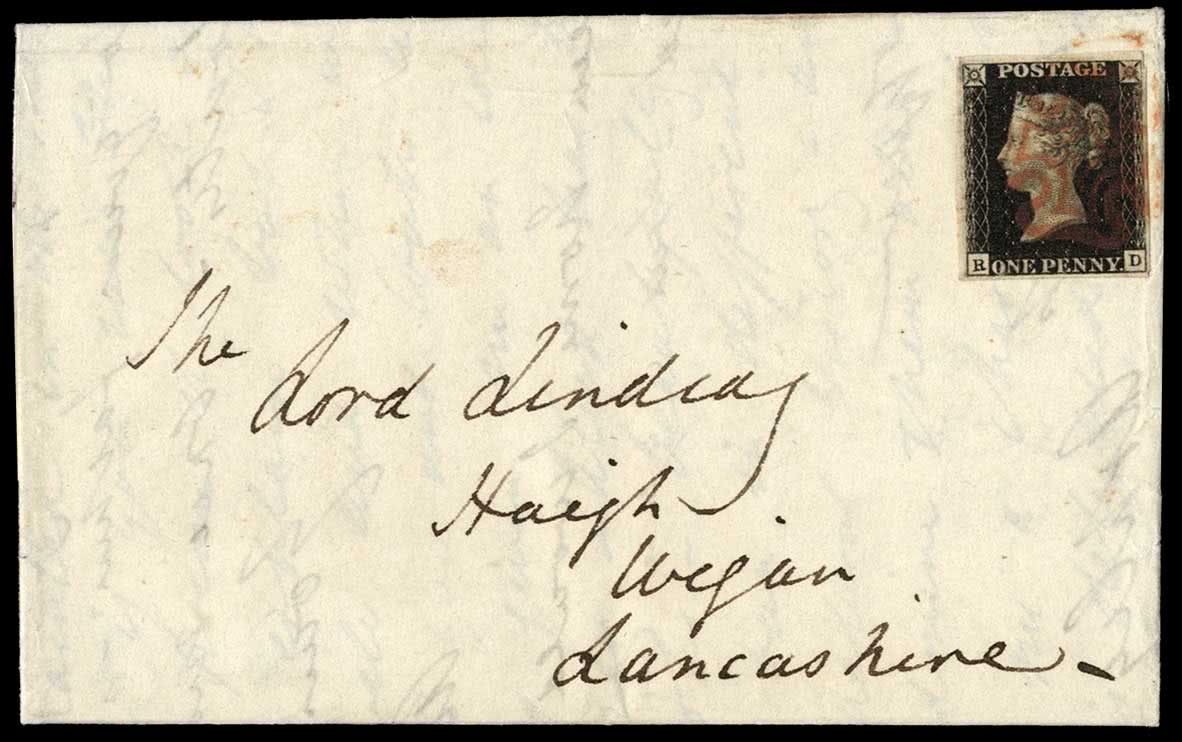 POSTAGE
R ONE PENNY. D
The
Lord Lindsay
Haigh
Wigan
Lancashire